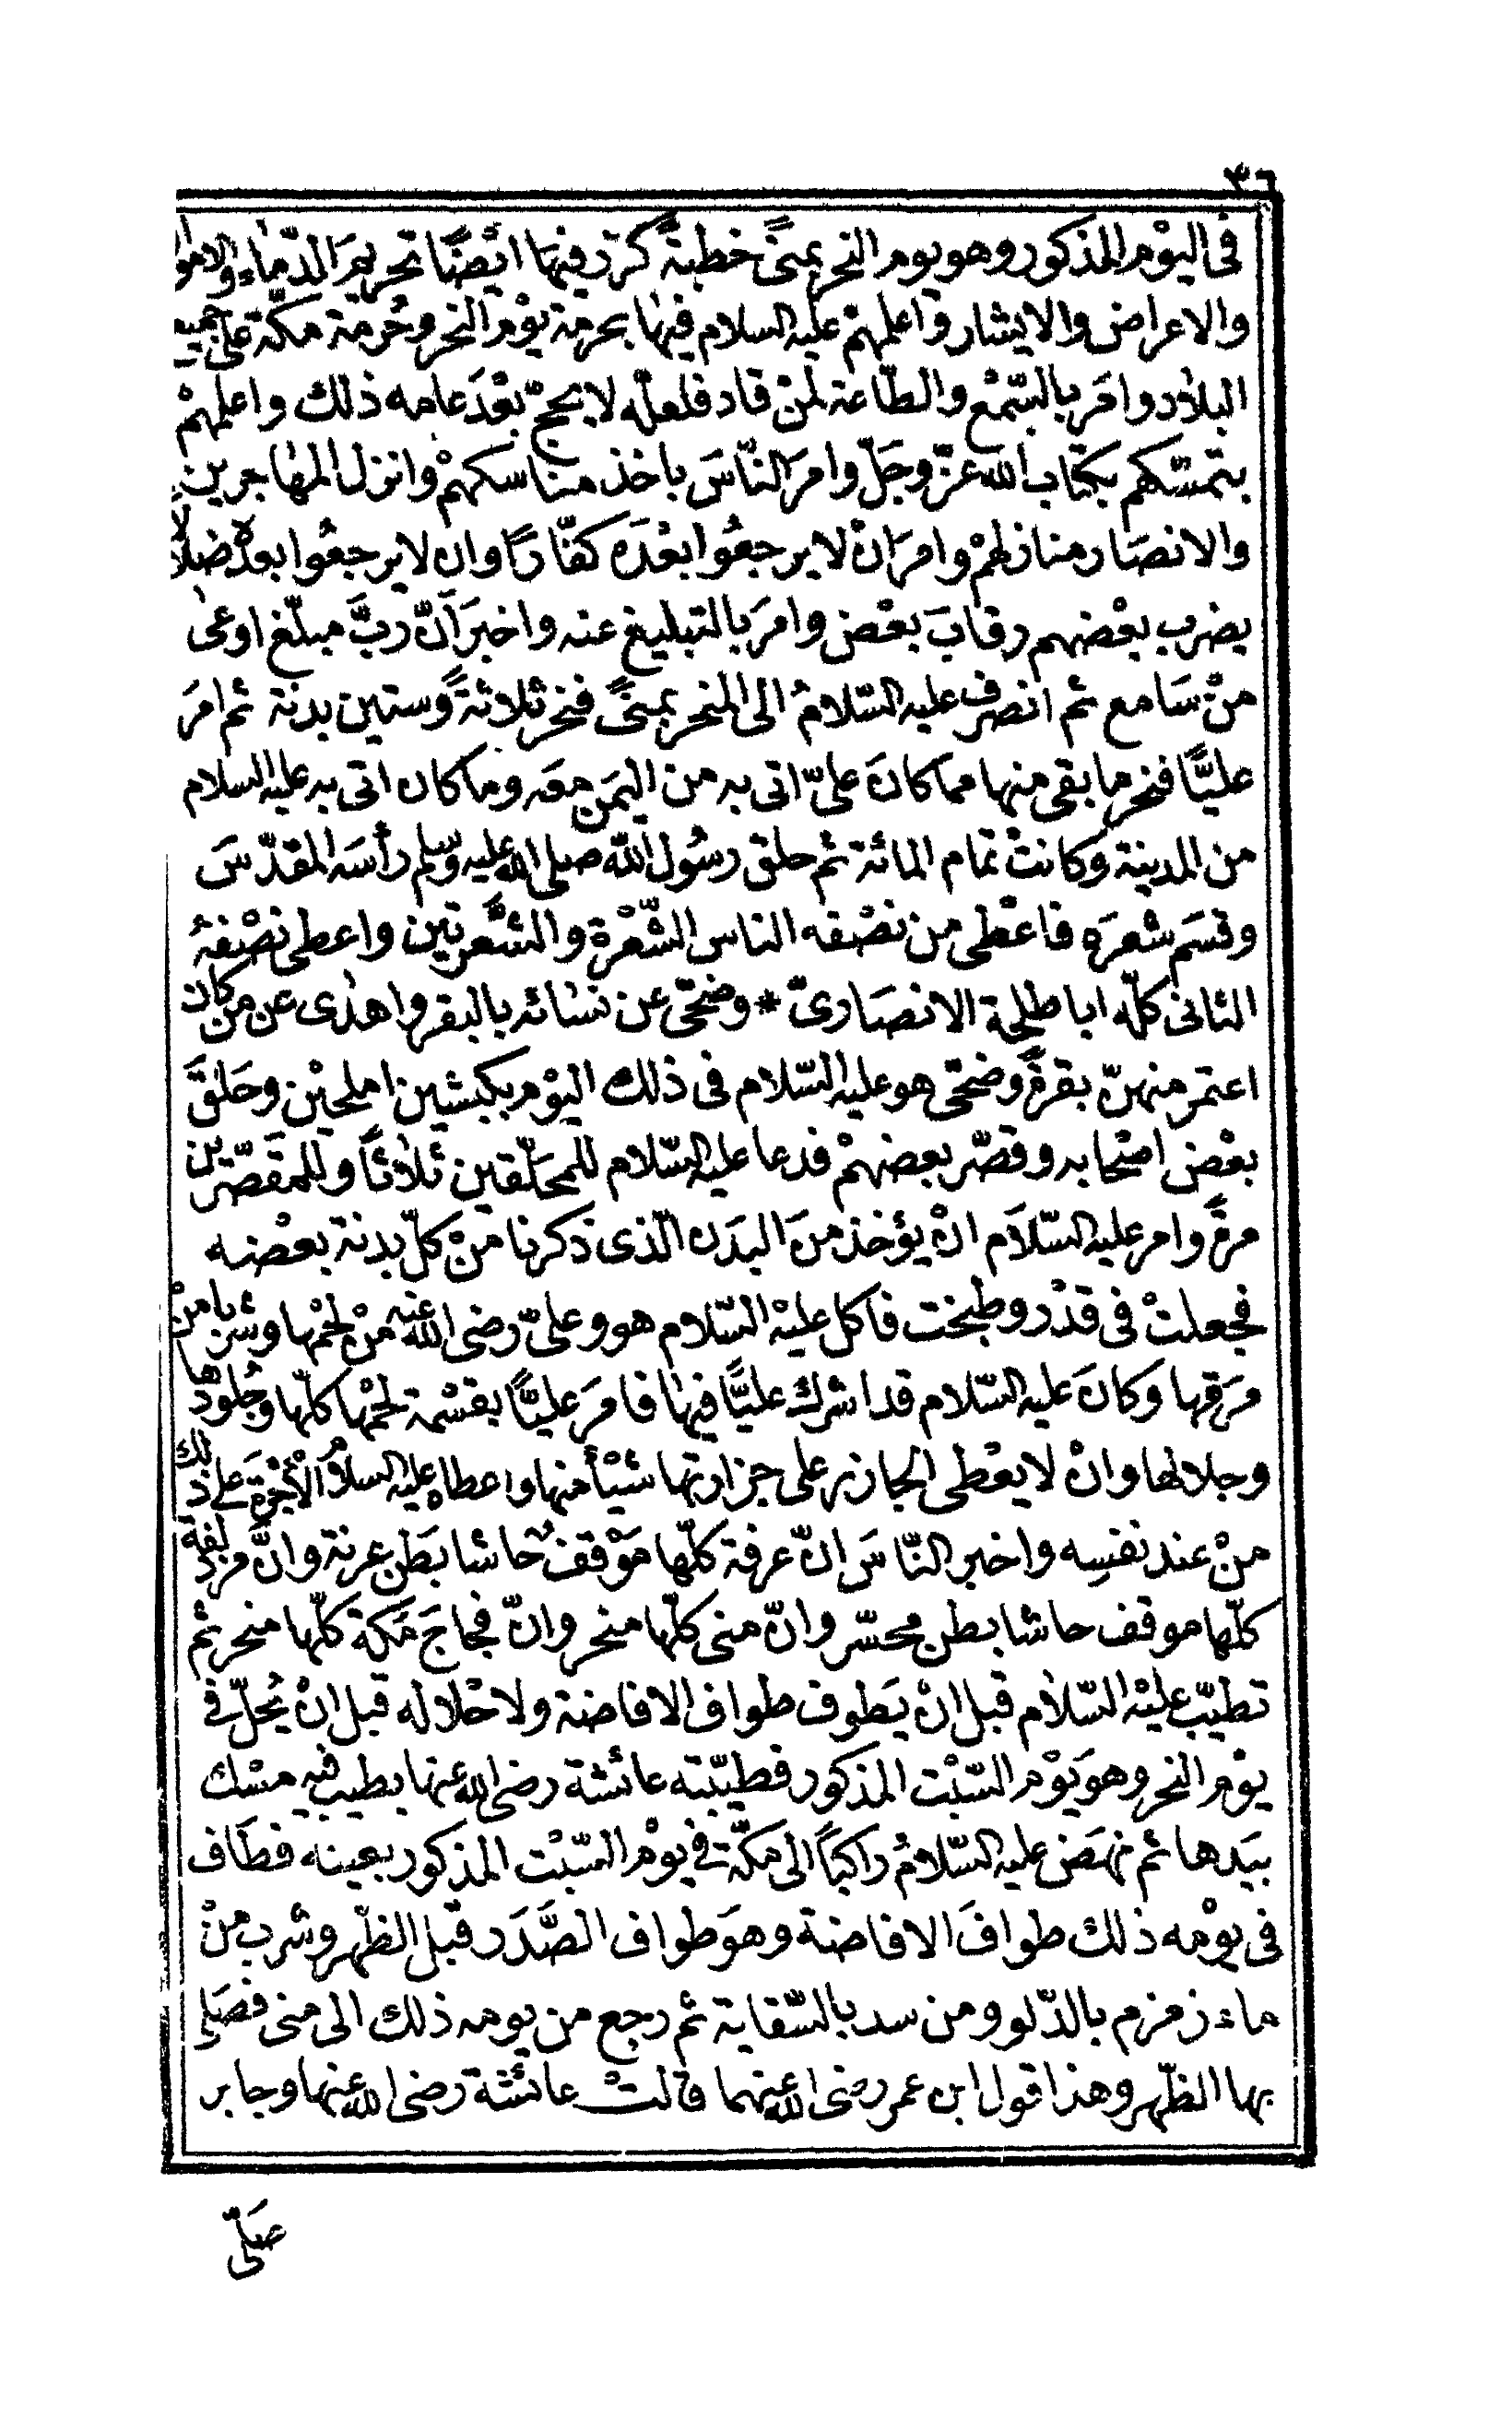 ٣٦
فى اليوْم المذكور وهو يوم النحر بمنًى خطبةً كرّر فيها ايْضًا تحريمَ الدّماء والاموال
والاعراض والابشار واعلمهمْ عليه السلام فيها بحرمة يوْم النحر وحُرمة مكّة على جميع
البلاد وامَر بالسّمْع والطّاعة لمنْ قاد فلعلّه لا يحجّ بعْدَ عامه ذلك واعلمهمْ
بتمسّكهم بكتاب الله عزّ وجَلّ وامرَ النّاسَ باخذ مناسكهمْ وانزل المهاجرين
والانصَار منازلهمْ وامرَ انْ لا يرجعُوا بعْدَه كفّارًا وان لا يرجعُوا بعده ضلاّلاً
يضرب بعْضهم رقابَ بعْض وامرَ بالتبليغ عنه واخبرَ اَنّ ربَّ مبلّغ اوعى
منْ سَامع ثم انصرف عليه السّلامُ الى المنحر بمنًى فنحر ثلاثةً وستين بدنة ثم امرَ
عليًّا فنحر ما بقى منها مما كانَ علىّ اتى به من اليمَن معَه وما كان اتى به عليه السلام
من المدينة وكانتْ تمام المائة ثم حلق رسُول الله صلى الله عليه وسلم رأسَه المقدّسَ
وقسَم شعرَه فاعْطى من نصْفه الناس الشّعْرة والشَّعرتين واعطى نصْفهُ
الثانى كلّه ابا طلحة الانصَارىّ * وضحّى عن نسائه بالبقر واهدى عن من كان
اعتمر منهنّ بقرةً وضحّى هو عليه السّلام فى ذلك اليوْم بكبشين املحيْن وحَلقَ
بعْض اصْحابه وقصّر بعضهمْ فدعا عليه السّلام للمحَلّقين ثلاثاً وللمقصّرين
مرةً وامر عليه السّلاَم انْ يؤخذ منَ البدَن الّذى ذكرنا منْ كلّ بدنة بعْضه
فجعلتْ فى قدْر وطبخت فاكل عليْه السّلام هو وعلىّ رضى الله عنه منْ لحْمها وشربا منْ
مرَقها وكانَ عليه السّلام قد اشرك عليًّا فيها فامَر عليًّا بقسْمة لحْمها كلّها وجُلودها
وجلالها وانْ لا يعْطى الجازر على جزارتها شيْأ منها واعطاه عليه السلامُ الاُجْرَة على ذلك
منْ عند نفسِه واخبر النّاسَ انّ عرفة كلّها مَوْقفٌ حاشا بطَن عرنة وانَّ مزدلفة
كلّها موقف حاشا بطن محسّر وانّ منى كلّها منحر وانّ فجاجَ مَكة كلّها منحر ثم
تطيّب عليْه السّلام قبل انْ يَطوف طواف الافاضة ولاحْلاله قبل انْ يُحلّ فى
يوْم النحر وهوَ يوْم السّبْت المذكور فطيّبته عائشة رضى الله عنها بطيب فيه مسْك
بيَدها ثم نهَض عليه السّلامُ راكبًا الى مكّة فى يوْم السّبْت المذكور بعينه فطَاف
فى يوْمه ذلك طوافَ الافاضة وهوَ طواف الصَّدَر قبل الظّهر وشرب منْ
ماء زمزم بالدّلو ومن سد بالسّقاية ثم رجع من يومه ذلك الى منى فصَلى
بها الظّهر وهذا قول ابن عمر رضى الله عنهما قالتْ عائشة رضى الله عنها وجابر
صَلّى